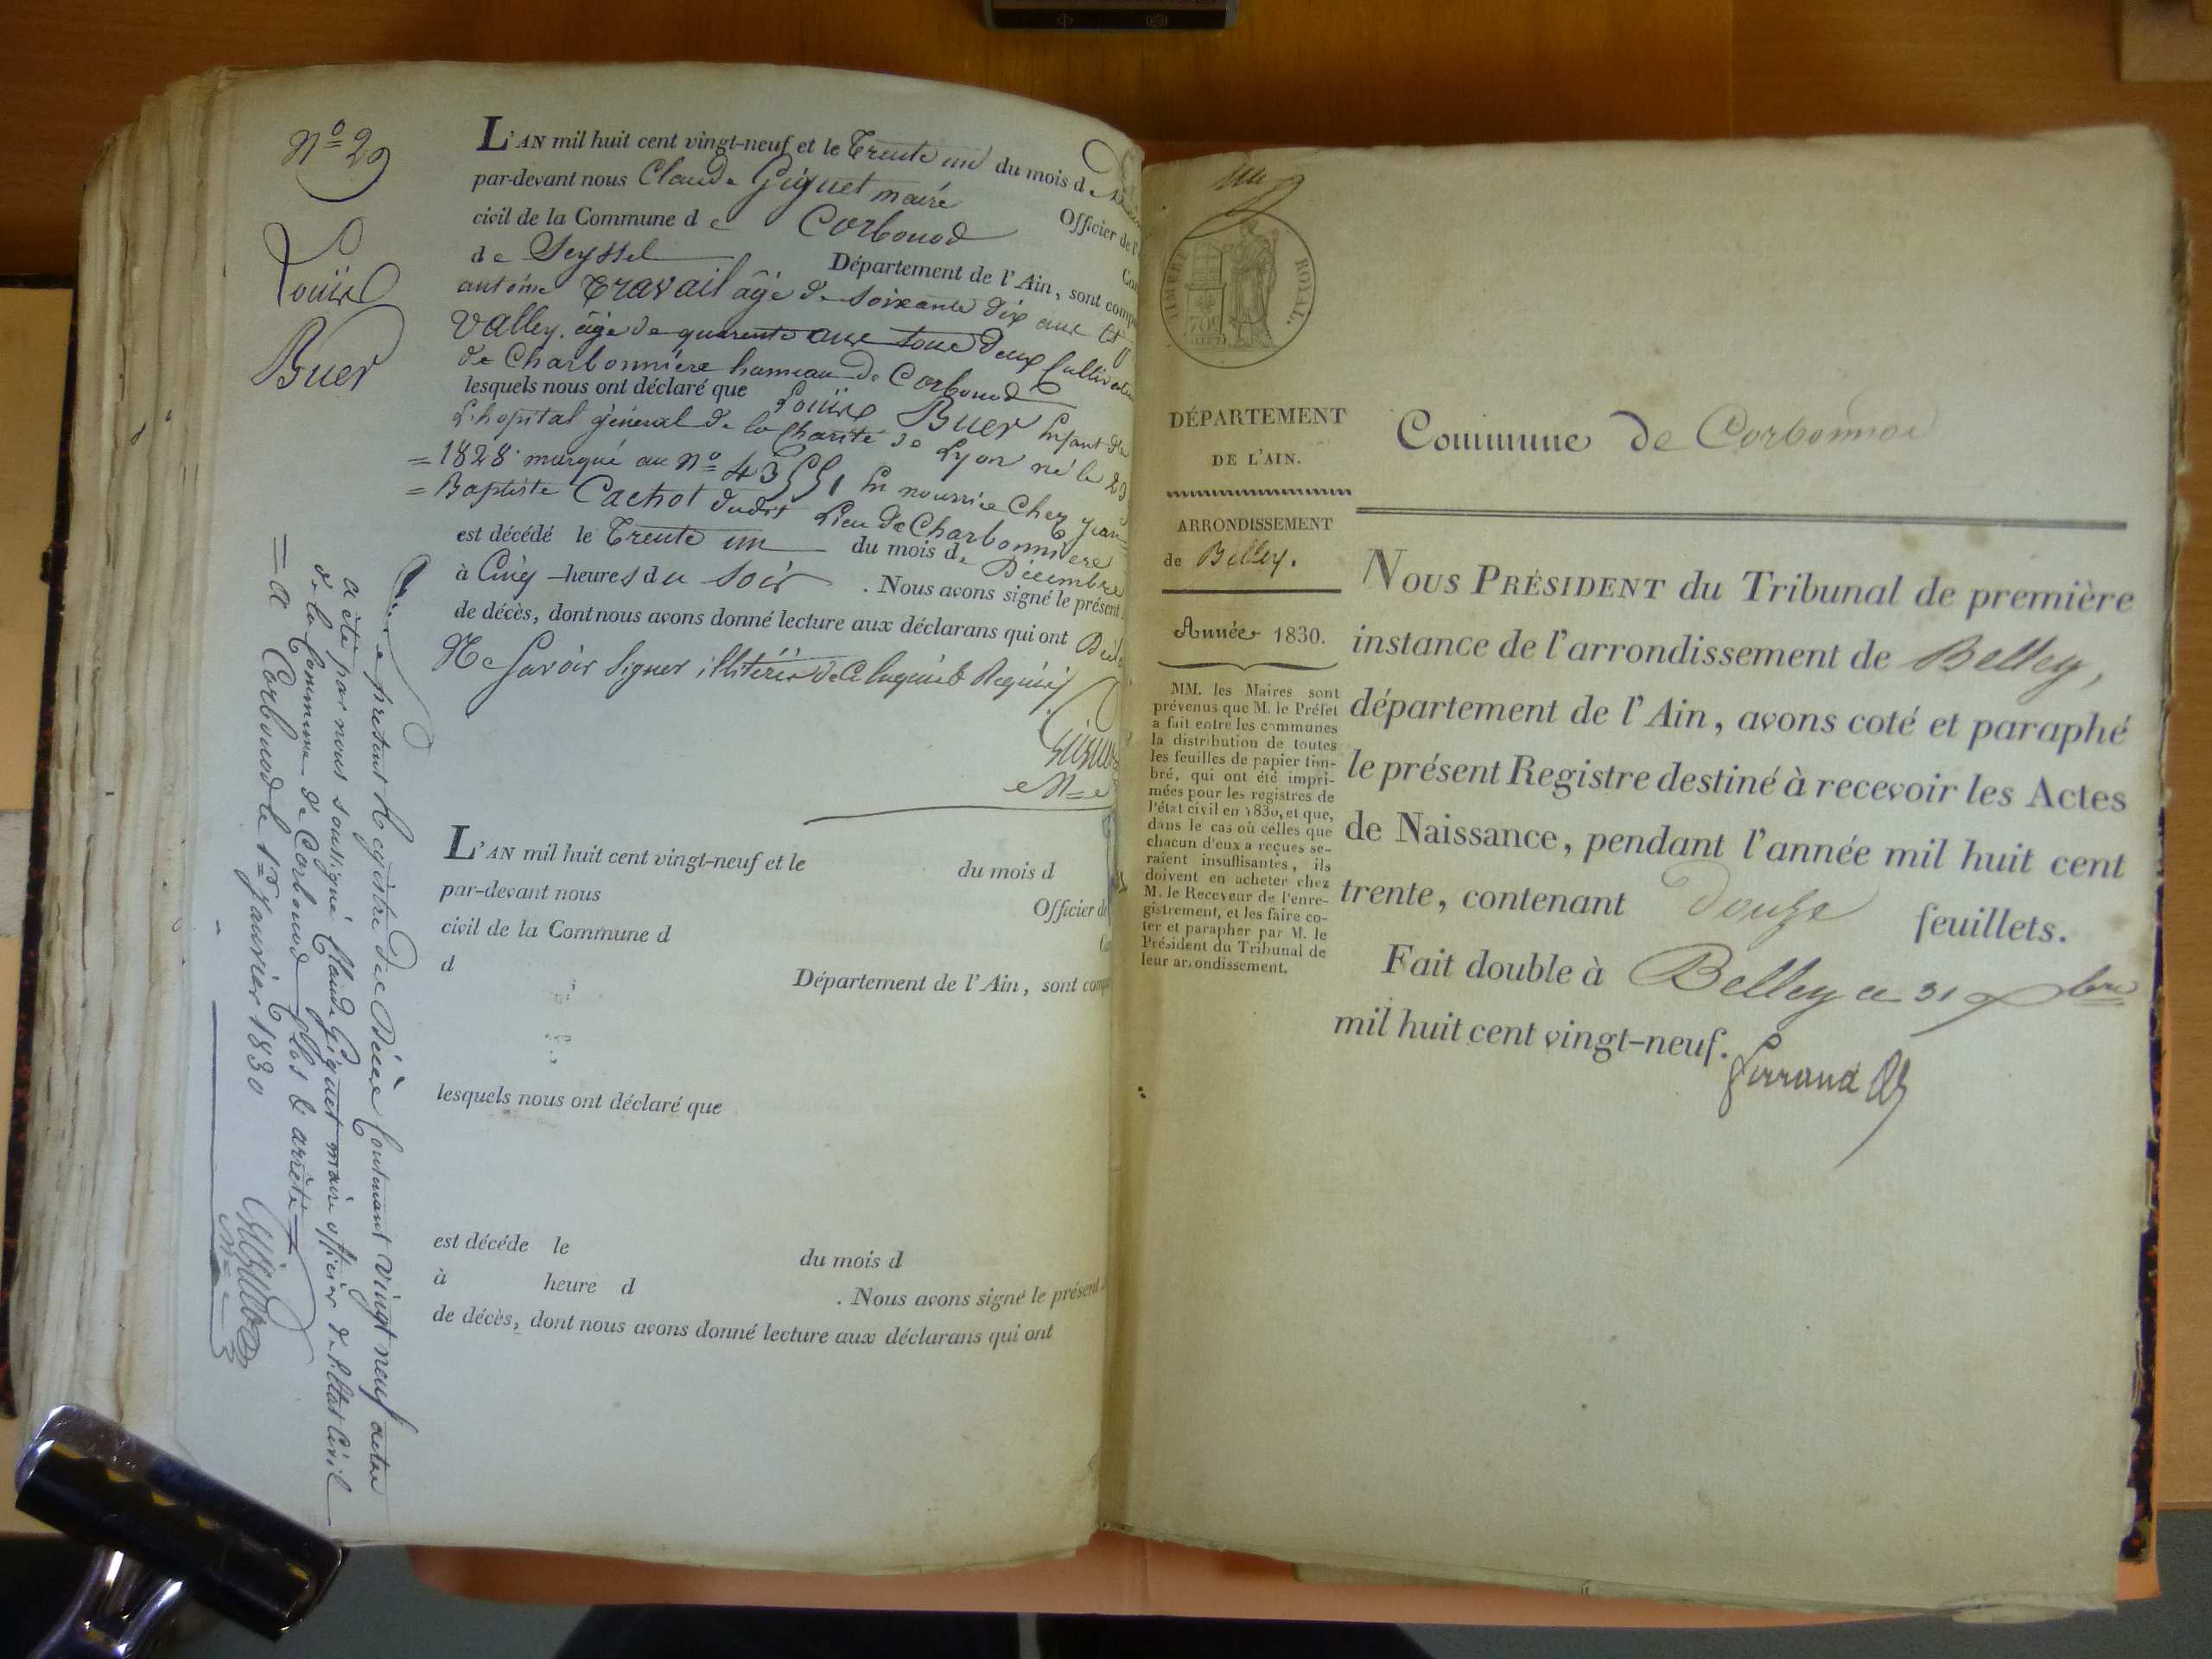 Nº 29
Louise
Buer
L'AN mil huit cent vingt-neuf et le Trente un du mois de
par-devant nous Claude Giguet maire Officier de l'
civil de la Commune de Corbonod
de Seyssel Département de l'Ain, sont comp
antoine Travail âgé de soixante dix ans Et
Valley. âgé de quarente ans tous deux Cultivateu
de Charbonniere hameau de Corbonod
lesquels nous ont déclaré que Louise Buer Enfant de
L'hopital général de la Charité de Lyon né le 29
= 1828 marqué au Nº 43551 En nourrice Chez Jean
= Baptiste Cachot dudit Lieu de Charbonniere
est décédé le Trente un du mois de Décembre
à Cinq heures du soir . Nous avons signé le présent
de décès, dont nous avons donné lecture aux déclarans qui ont
Ne Savoir Signer illitérés de ce Enquis & Requis
L'AN mil huit cent vingt-neuf et le du mois d
par-devant nous Officier de
civil de la Commune d
d Département de l'Ain, sont comp
lesquels nous ont déclaré que
est décédé le du mois d
à heure d . Nous avons signé le présent
de décès, dont nous avons donné lecture aux déclarans qui ont
présent Registre de Décès Contenant vingt neuf actes
a été par nous soussigné Claude Giguet maire officier de l'Etat Civil
de la Commune de Corbonod Clos & arrêté
= a Corbonod le 1er Janvier 1830
TIMBRE ROYAL.
70
DÉPARTEMENT
DE L'AIN.
ARRONDISSEMENT
de Belley.
Année 1830.
MM. les Maires sont
prévenus que M. le Préfet
a fait entre les communes
la distribution de toutes
les feuilles de papier tim-
bré, qui ont été impri-
mées pour les registres de
l'état civil en 1830, et que,
dans le cas où celles que
chacun d'eux a reçues se-
raient insuffisantes, ils
doivent en acheter chez
M. le Receveur de l'enre-
gistrement, et les faire co-
ter et parapher par M. le
Président du Tribunal de
leur arrondissement.
Commune de Corbonnod
NOUS PRÉSIDENT du Tribunal de première
instance de l'arrondissement de Belley,
département de l'Ain, avons coté et paraphé
le présent Registre destiné à recevoir les Actes
de Naissance, pendant l'année mil huit cent
trente, contenant douze feuillets.
Fait double à Belley ce 31 Xbre
mil huit cent vingt-neuf.